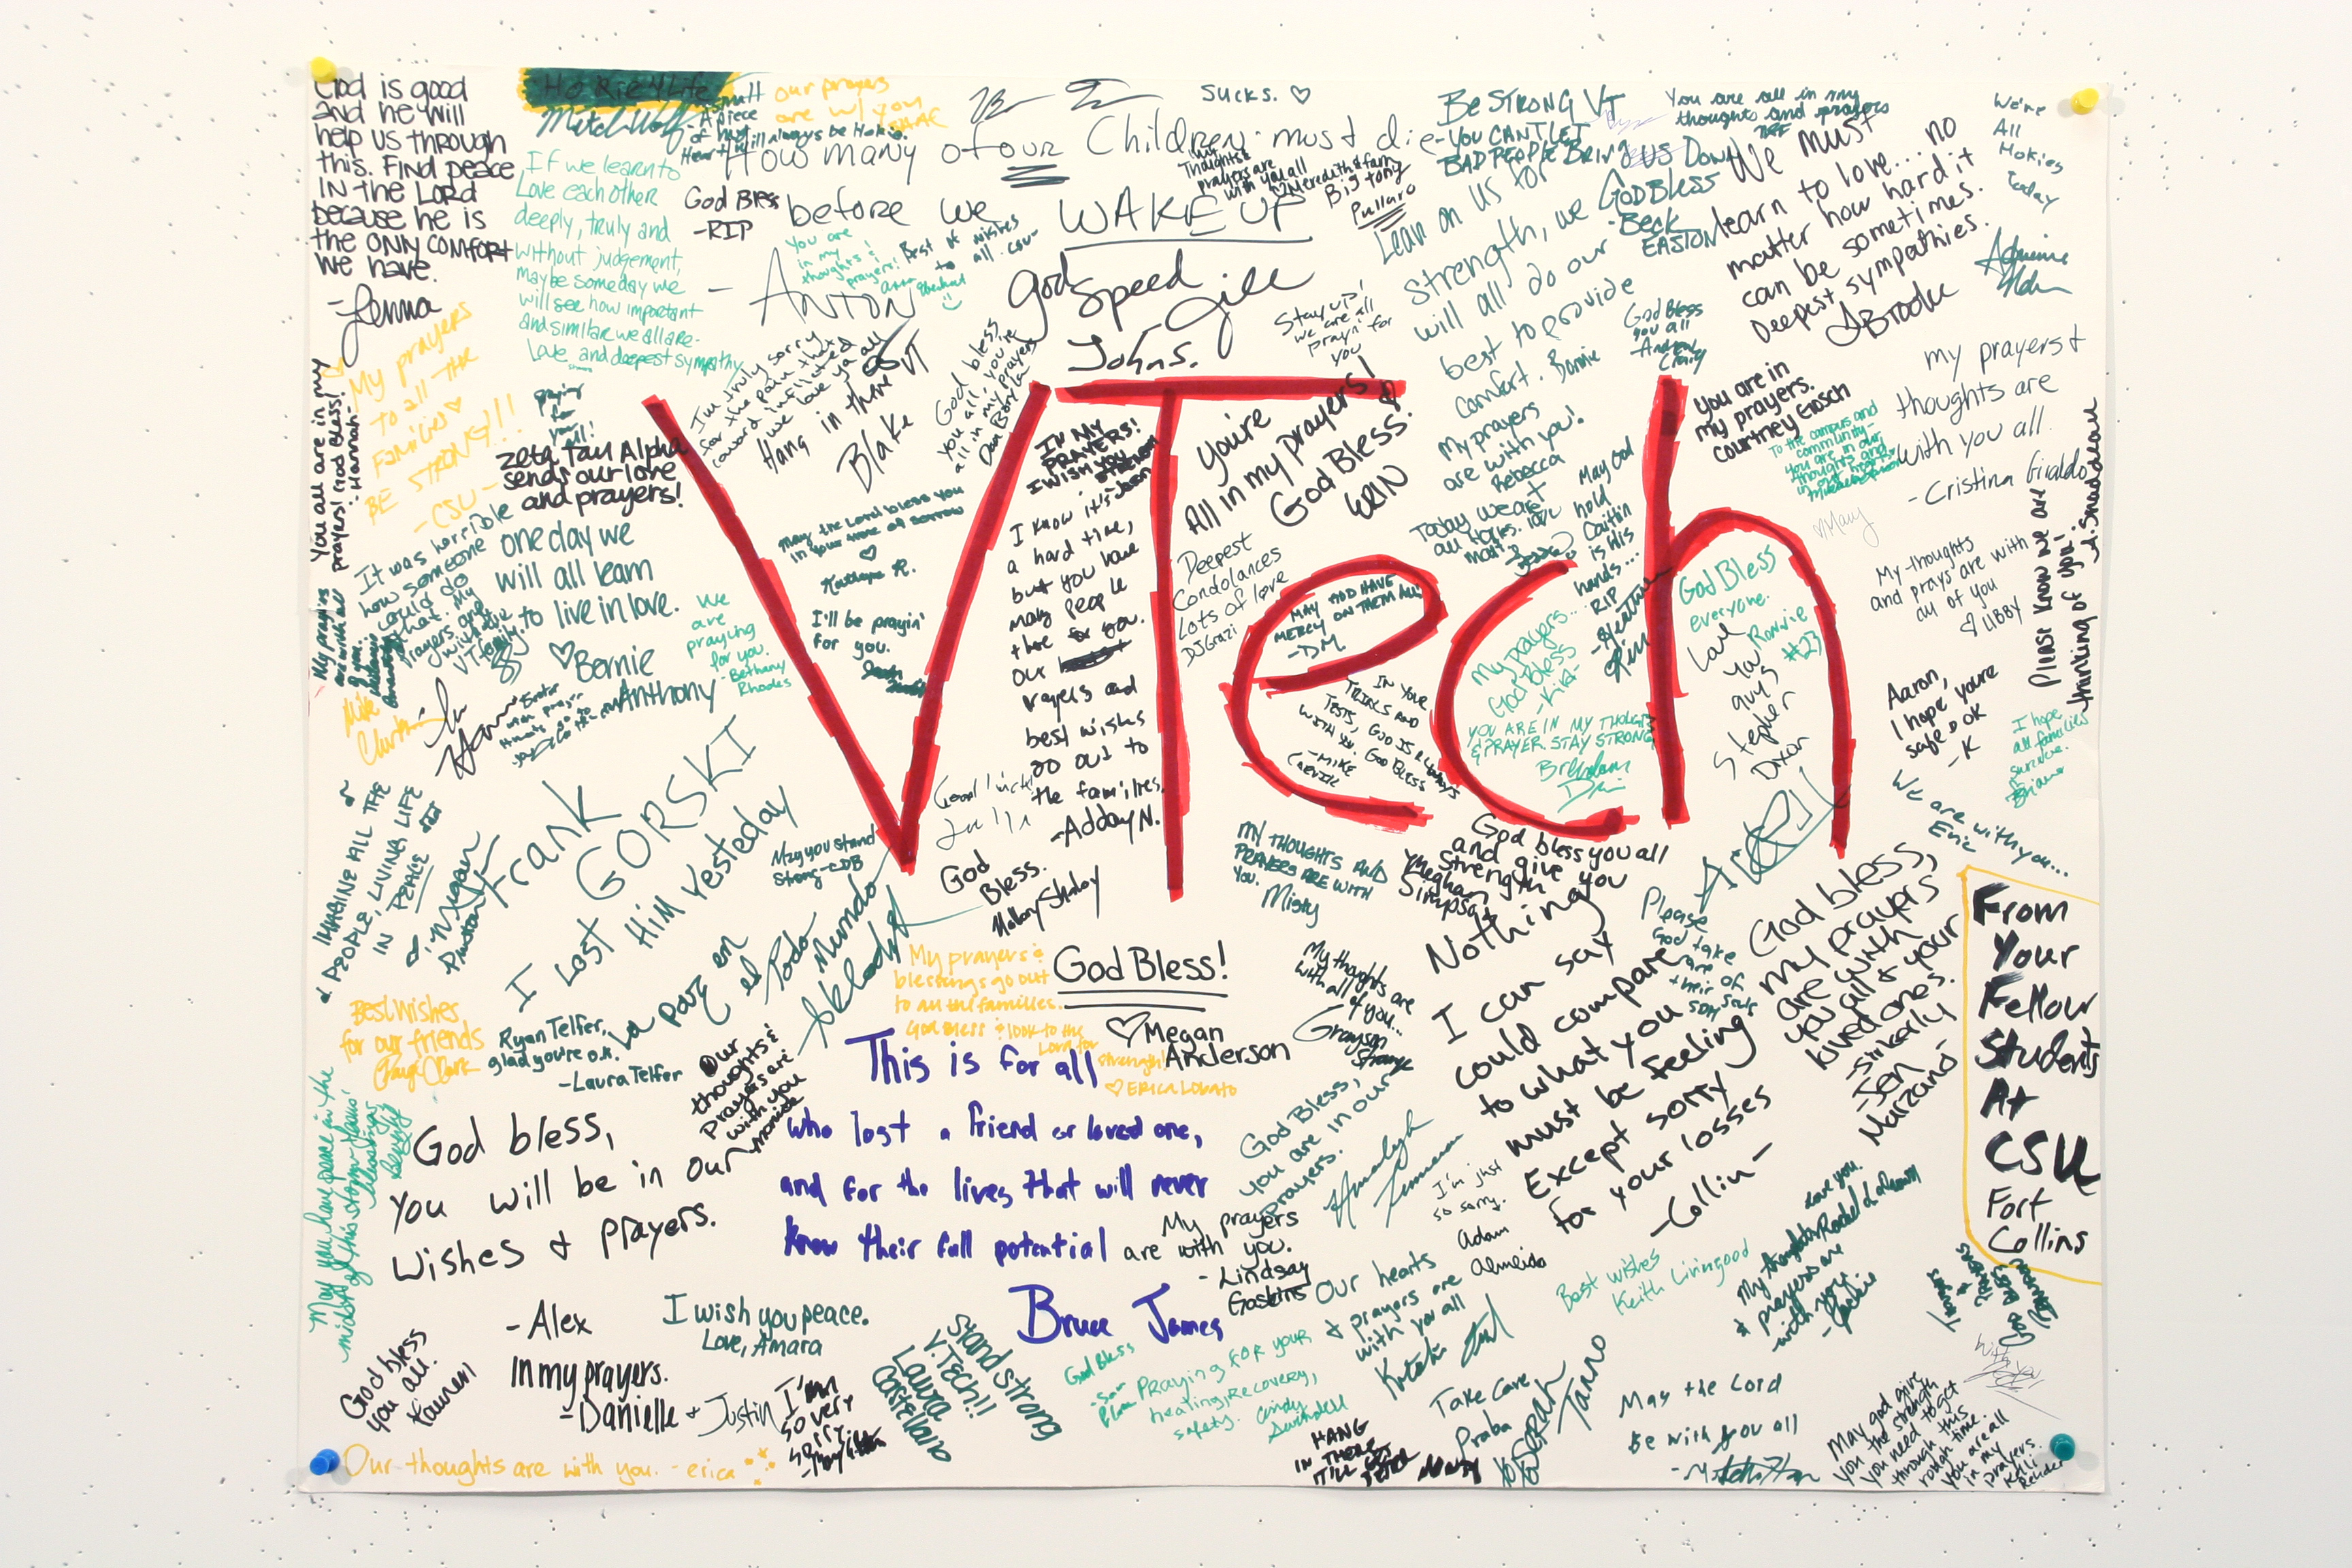 God is good
and he will
help us through
this. Find peace
in the Lord
because he is
the only comfort
we have.
-Jenna
Hokie 4 Life
A piece
of my
Heart will always be Hokie.
our prayers
are w/ you
sucks. ♡
How many of our Children must die
before we WAKE UP
- ANTON
BE STRONG VT
-YOU CAN'T LET
BAD PEOPLE BRING US DOWN
GOD BLESS
-Beck
EASTON
You are all in my
thoughts and prayers
We're
All
Hokies
Today
We must
learn to love... no
matter how hard it
can be sometimes.
Deepest sympathies.
Brooke
If we learn to
Love each other
deeply, truly and
without judgement,
maybe someday we
will see how important
and similar we all are-
Love and deepest sympathy
God Bless
-RIP
You are
in my
thoughts &
prayers!
Best of wishes
to all. CSU-
My
Thoughts &
prayers are
with you all
♡Meredith & fam
Big Tony
Pullaro
Lean on us for
strength, we
will all do our
best to provide
comfort. Bonnie
God speed
Jill
Johns.
Stay up!
we are all
prayin' for
you
God Bless
you all
-Andrew
Craig
My prayers
to all the
families♡
BE STRONG!!!
-CSU-
You all are in my
prayers! God Bless!
-Hannah-
praying
for
you
all!
Zeta Tau Alpha
sends our love
and prayers!
I'm truly sorry
for the pain that
coward inflicted
we love ya all
Hang in there VT
Blake
God bless
you all, you're
all in my prayers
VTech
IN MY
PRAYERS!
I WISH YOU
I know it's been
a hard time,
but you have
many people
there for you.
Our
Prayers and
best wishes
go out to
the families.
-Adday N.
you're
All in my prayers!
God Bless
ERIN
My prayers
are with you!
Rebecca
Today we are
all Hokies.
May God
hold
Caitlin
is His
hands...
RIP
-Heather
You are in
my prayers.
Courtney Enosch
To the campus and
community-
you are in our
thoughts and
in our hearts
my prayers &
thoughts are
with you all.
- Cristina Giraldo
♡Mary
Please know we are
thinking of you!
A. Snadeau
It was horrible
how someone
could do
that. My
Prayers are
with the
VT family.
one day we
will all learn
to live in love.
♡Bernie
Anthony
May the Lord bless you
in your time of sorrow
♡
Kathryn R.
I'll be prayin'
for you.
We
are
praying
for you.
-Bethany
Rhodes
Deepest
Condolances
Lots of love
DJ Grazi
MAY GOD HAVE
MERCY ON THEM ALL!
-DM
My prayers...
God Bless
-Kira-
God Bless
everyone.
Ronnie
#23
Love
you
guys
Stephen
Dixon
My thoughts
and prays are with
all of you
♡ Libby
My prayers
are with all
of you.
IN YOUR
TRIALS AND
TESTS, GOD IS ALWAYS
WITH YOU. GOD BLESS
-MIKE
YOU ARE IN MY THOUGHTS
& PRAYER. STAY STRONG
Brendan
Aaron,
I hope you're
safe & OK
-K
I hope
all families
survive.
Briana
We are with you...
Eric
IMAGINE ALL THE
PEOPLE, LIVING LIFE
IN PEACE
Frank
GORSKI
I Lost Him Yesteday
May you stand
Strong-CDB
Good luck!
Julli
God
Bless.
MY THOUGHTS AND
PRAYERS ARE WITH
YOU.
Misty
God bless you all
and give you
strength
Meghan
Simpson
APRIL
Please
God take
care of
their
souls
La paz en
el Todo
Mundo
My prayers &
blessings go out
to all the families...
God Bless & look to the
Lord for
strength!
♡ERICA LOBATO
God Bless!
♡Megan
Anderson
My thoughts are
with all of you...
Grayson
Strange
Nothing
I can say
could compare
to what you
must be feeling
Except sorry
for your losses
-Collin-
God bless,
my prayers
are with
you all & your
loved ones.
-sinkerly
-Jen
Marzano-
From
Your
Fellow
Students
At
CSU
Fort
Collins
Best wishes
for our friends
Paige Clark
Ryan Telfer,
glad you're o.k.
-Laura Telfer
Our
thoughts &
Prayers are
with you
This is for all
who lost a friend or loved one,
and for the lives that will never
know their full potential
Bruce James
God bless,
you will be in our
wishes & prayers.
- Alex
May you have peace in the
midst of this storm
God Bless,
you are in our
prayers.
I'm just
so sorry.
Adam
Almeida
My prayers
are with you.
- Lindsay
Gaskins
Our hearts
& prayers are
with you all
Best wishes
Keith Livingood
My thoughts
& prayers are
with you
-Jackie
Love you.
I wish you peace.
Love, Amara
Stand strong
V. TECH!!
Laura
Castellano
God Bless
Praying for your
healing, recovery,
safety. Cindy
Swindell
God bless
you all.
In my prayers.
-Danielle & Justin
I'm
so very
sorry
Our thoughts are with you. -erica
HANG
IN THERE
IT'LL GET
BETTER
Take Care
Praba
May the Lord
Be with you all
May god give
you the strength
you need to get
through this
rough time.
You are all
in my
prayers.
Kelli